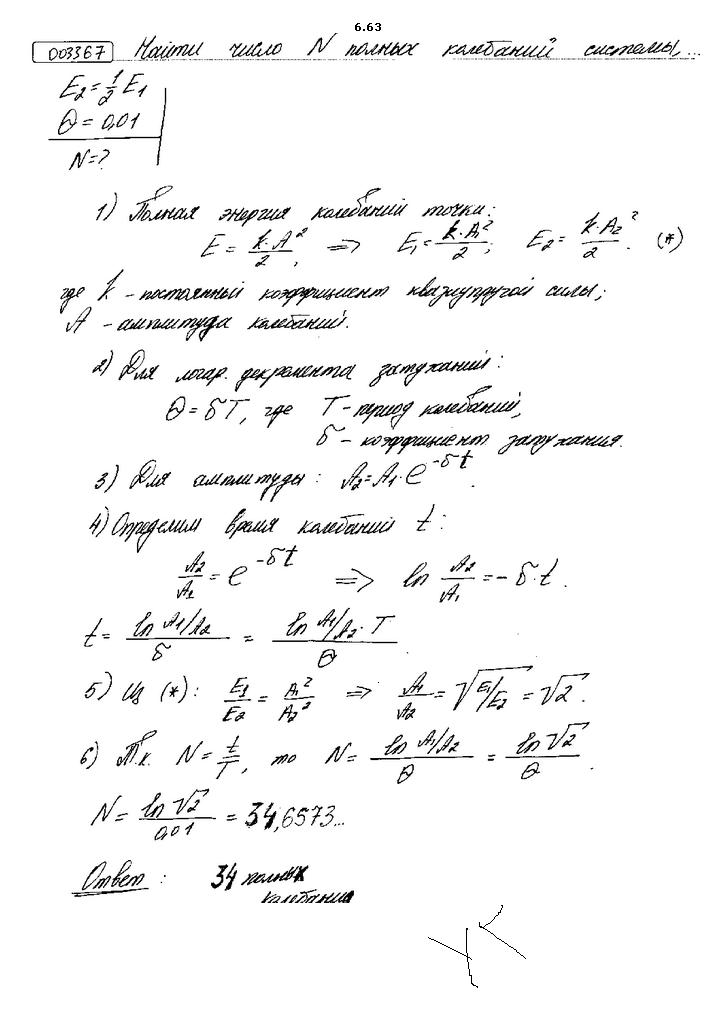 6.63
003367 Найти число N полных колебаний системы,...
E₂ = 1/2 E₁
Θ = 0,01
N = ?
1) Полная энергия колебаний точки:
E = k·A²/2, => E₁ = k·A₁²/2; E₂ = k·A₂²/2. (*)
где k - постоянный коэффициент квазиупругой силы;
A - амплитуда колебаний.
2) Для логар. декремента затуханий:
Θ = δT, где T - период колебаний,
δ - коэффициент затухания.
3) Для амплитуды: A₂ = A₁·e^(-δt).
4) Определим время колебаний t:
A₂/A₁ = e^(-δt) => ln A₂/A₁ = -δ·t.
t = ln A₁/A₂ / δ = ln A₁/A₂ · T / Θ
5) Из (*): E₁/E₂ = A₁²/A₂² => A₁/A₂ = √(E₁/E₂) = √2.
6) Т.к. N = t/T, то N = ln A₁/A₂ / Θ = ln √2 / Θ.
N = ln √2 / 0,01 = 34,6573...
Ответ: 34 полных
колебания